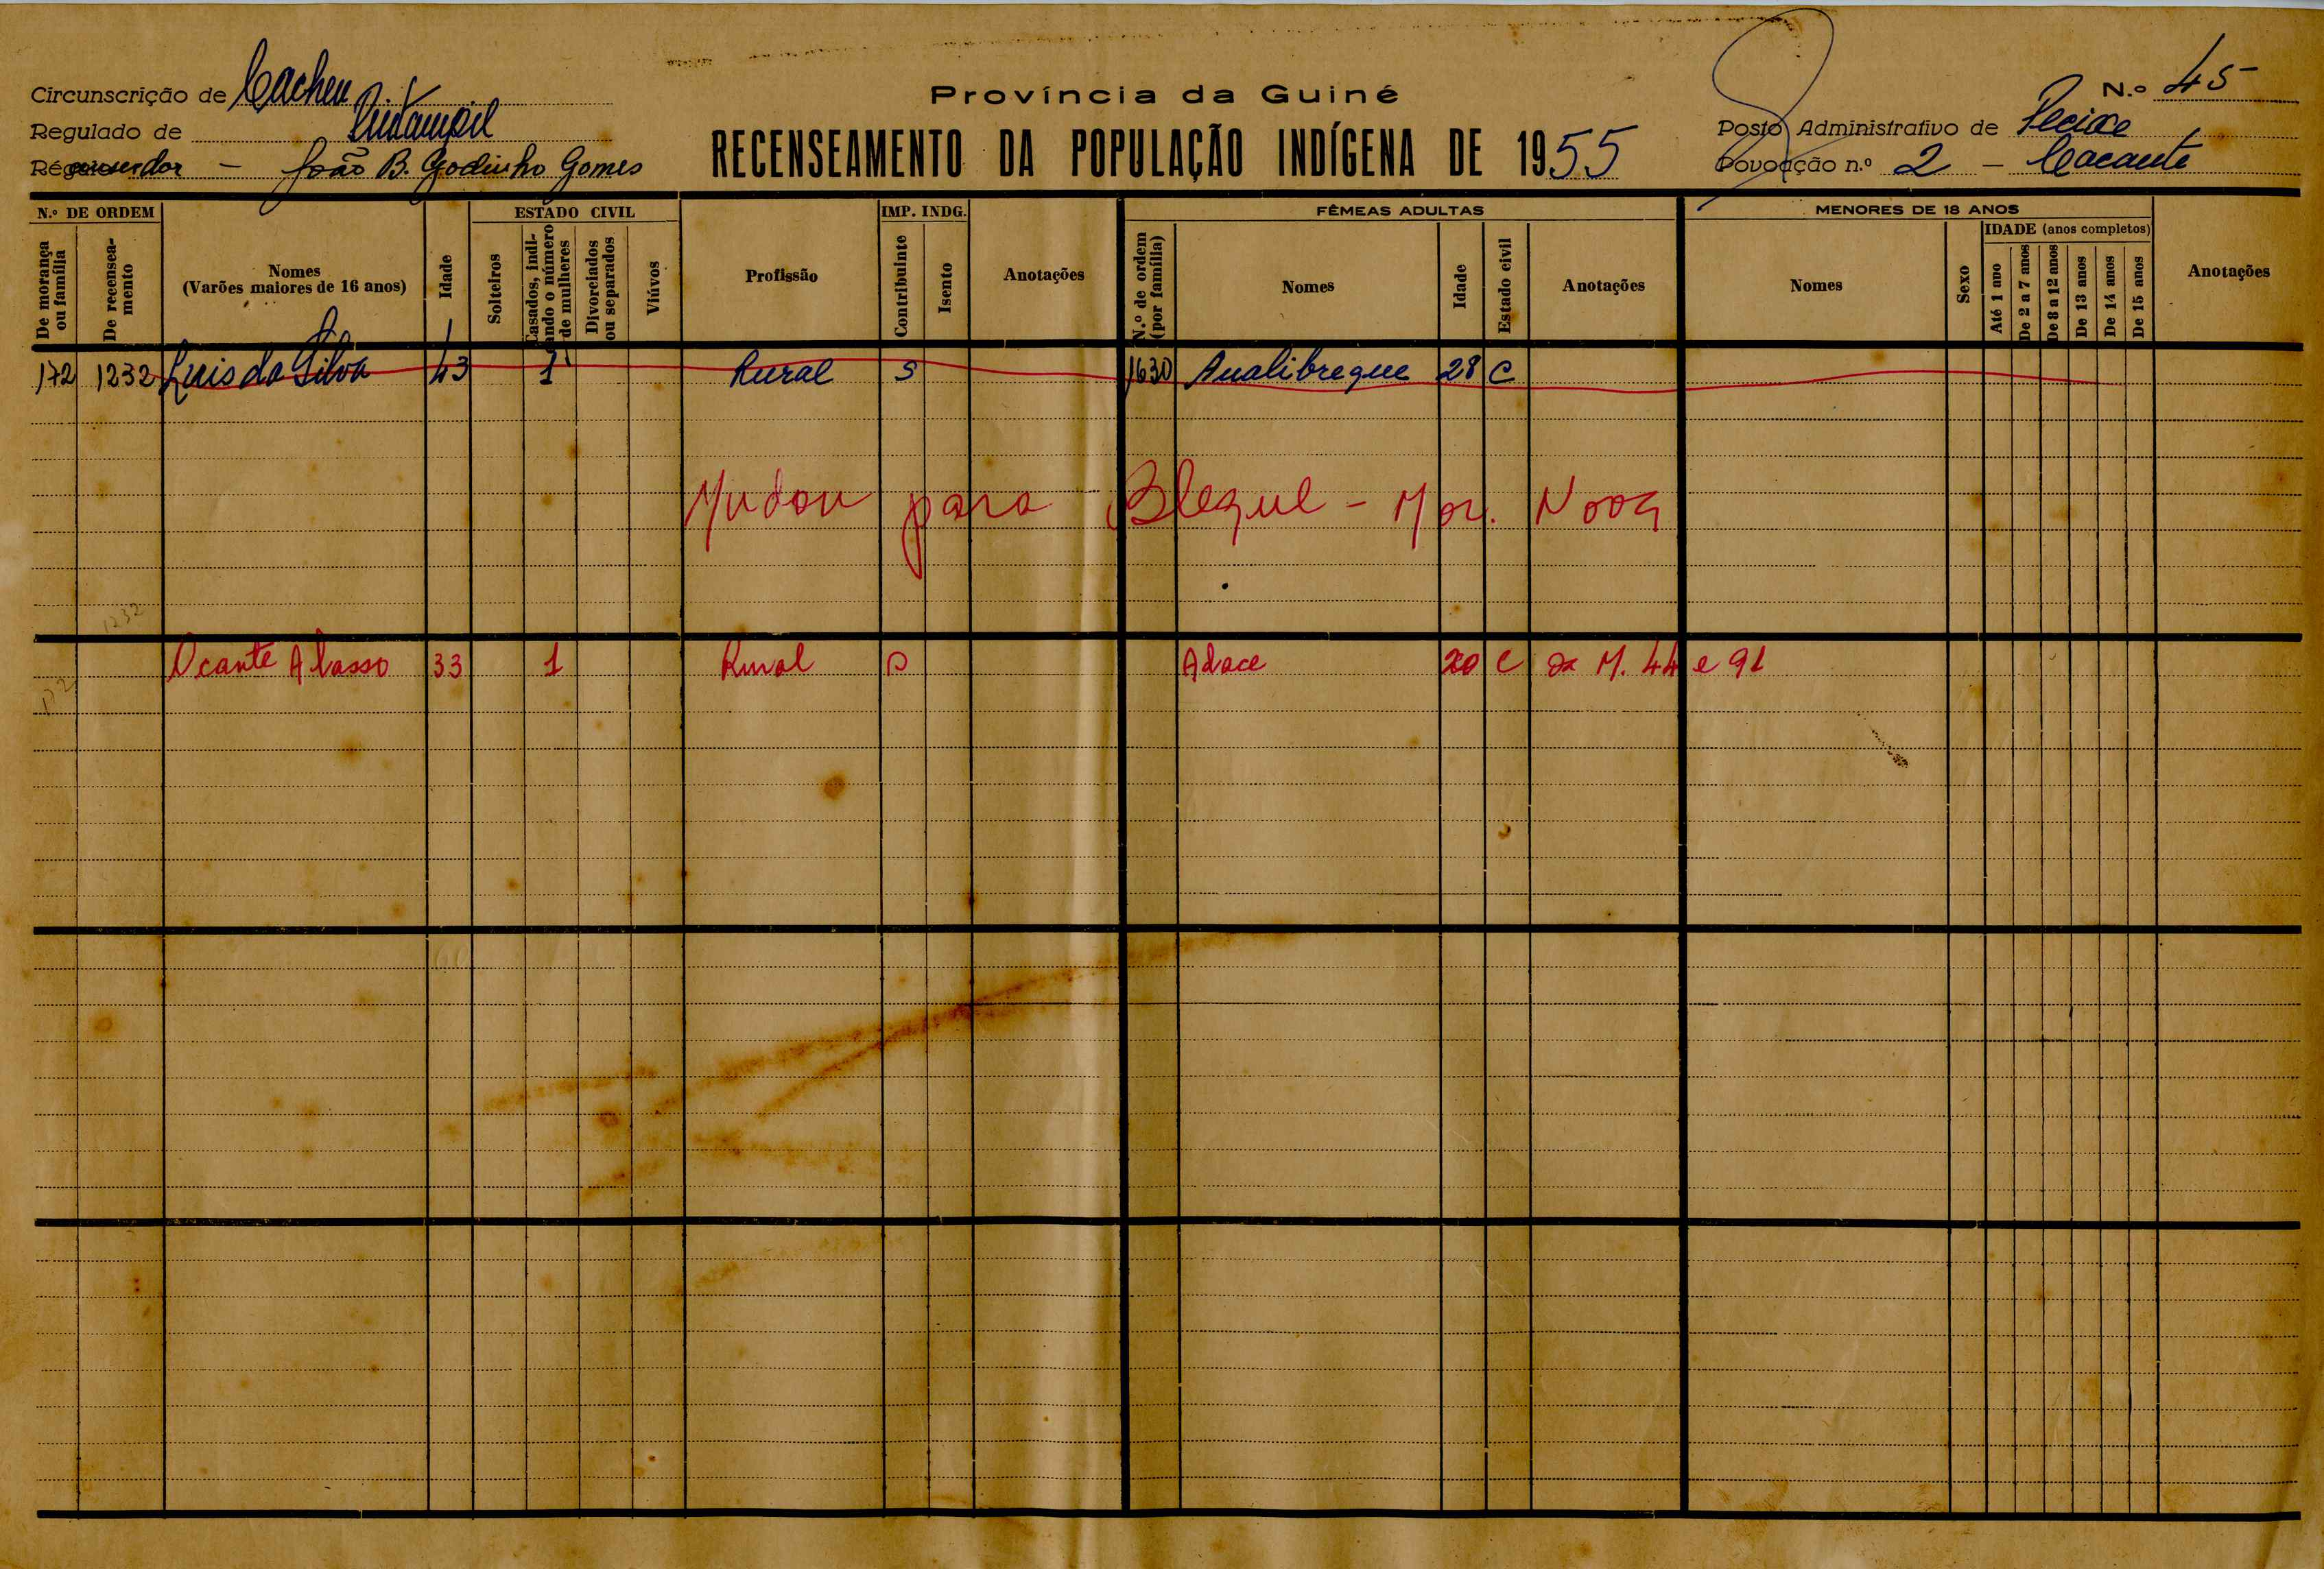 Província da Guiné
RECENSEAMENTO DA POPULAÇÃO INDÍGENA DE 1955
Circunscrição de Cacheu
Regulado de
João B. Godinho Gomes
N.º 45
Posto Administrativo de Pecixe
Povoação n.º 2 - Cacante
N.º DE ORDEM
De morança ou família
De recenseamento
Nomes
(Varões maiores de 16 anos)
Idade
ESTADO CIVIL
Solteiros
Casados, indicando o número de mulheres
Divorciados ou separados
Viúvos
Profissão
IMP. INDG.
Contribuinte
Isento
Anotações
FÊMEAS ADULTAS
N.º de ordem (por família)
Nomes
Idade
Estado civil
Anotações
MENORES DE 18 ANOS
Nomes
Sexo
IDADE (anos completos)
Até 1 ano
De 2 a 7 anos
De 8 a 12 anos
De 13 anos
De 14 anos
De 15 anos
Anotações
172 1232 Luis da Silva 43 1 Rural S 1630 Aualibreque 28 C
Mudou para Blequl - Mor. Nova
1232
Ocante 33 1 Rural Adace 20 C da M. 44 e 91
172